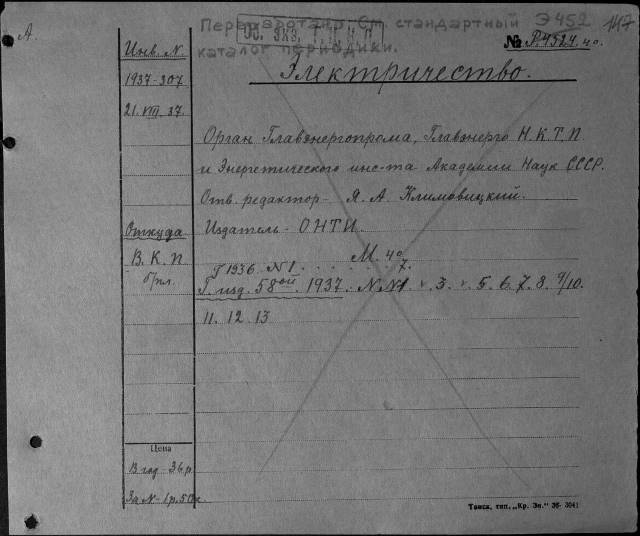 Переработано. См. стандартный Э 452 147
Об. экз. Г.П.Н.Б.
каталог периодики.
№ Р.4524. 4о.
А.
Инв. N
Электричество.
1937-307
21.VIII.37.
Орган Главэнергопрома, Главэнерго Н.К.Т.П.
и Энергетического инс-та Академии Наук СССР.
Отв. редактор - Я. А. Климовицкий.
Откуда
Издатель - ОНТИ.
В.К.П
М. 4о
б/пл.
Г 1936 N 1 . . . . . 7.
Г. изд. 58ой 1937. N.N 1 . 3. . 5. 6. 7. 8. 9/10.
11. 12. 13
Цена
В год - 36 р
За N - 1 р. 50 к
Томск, тип. „Кр. Зн." 36- 3041